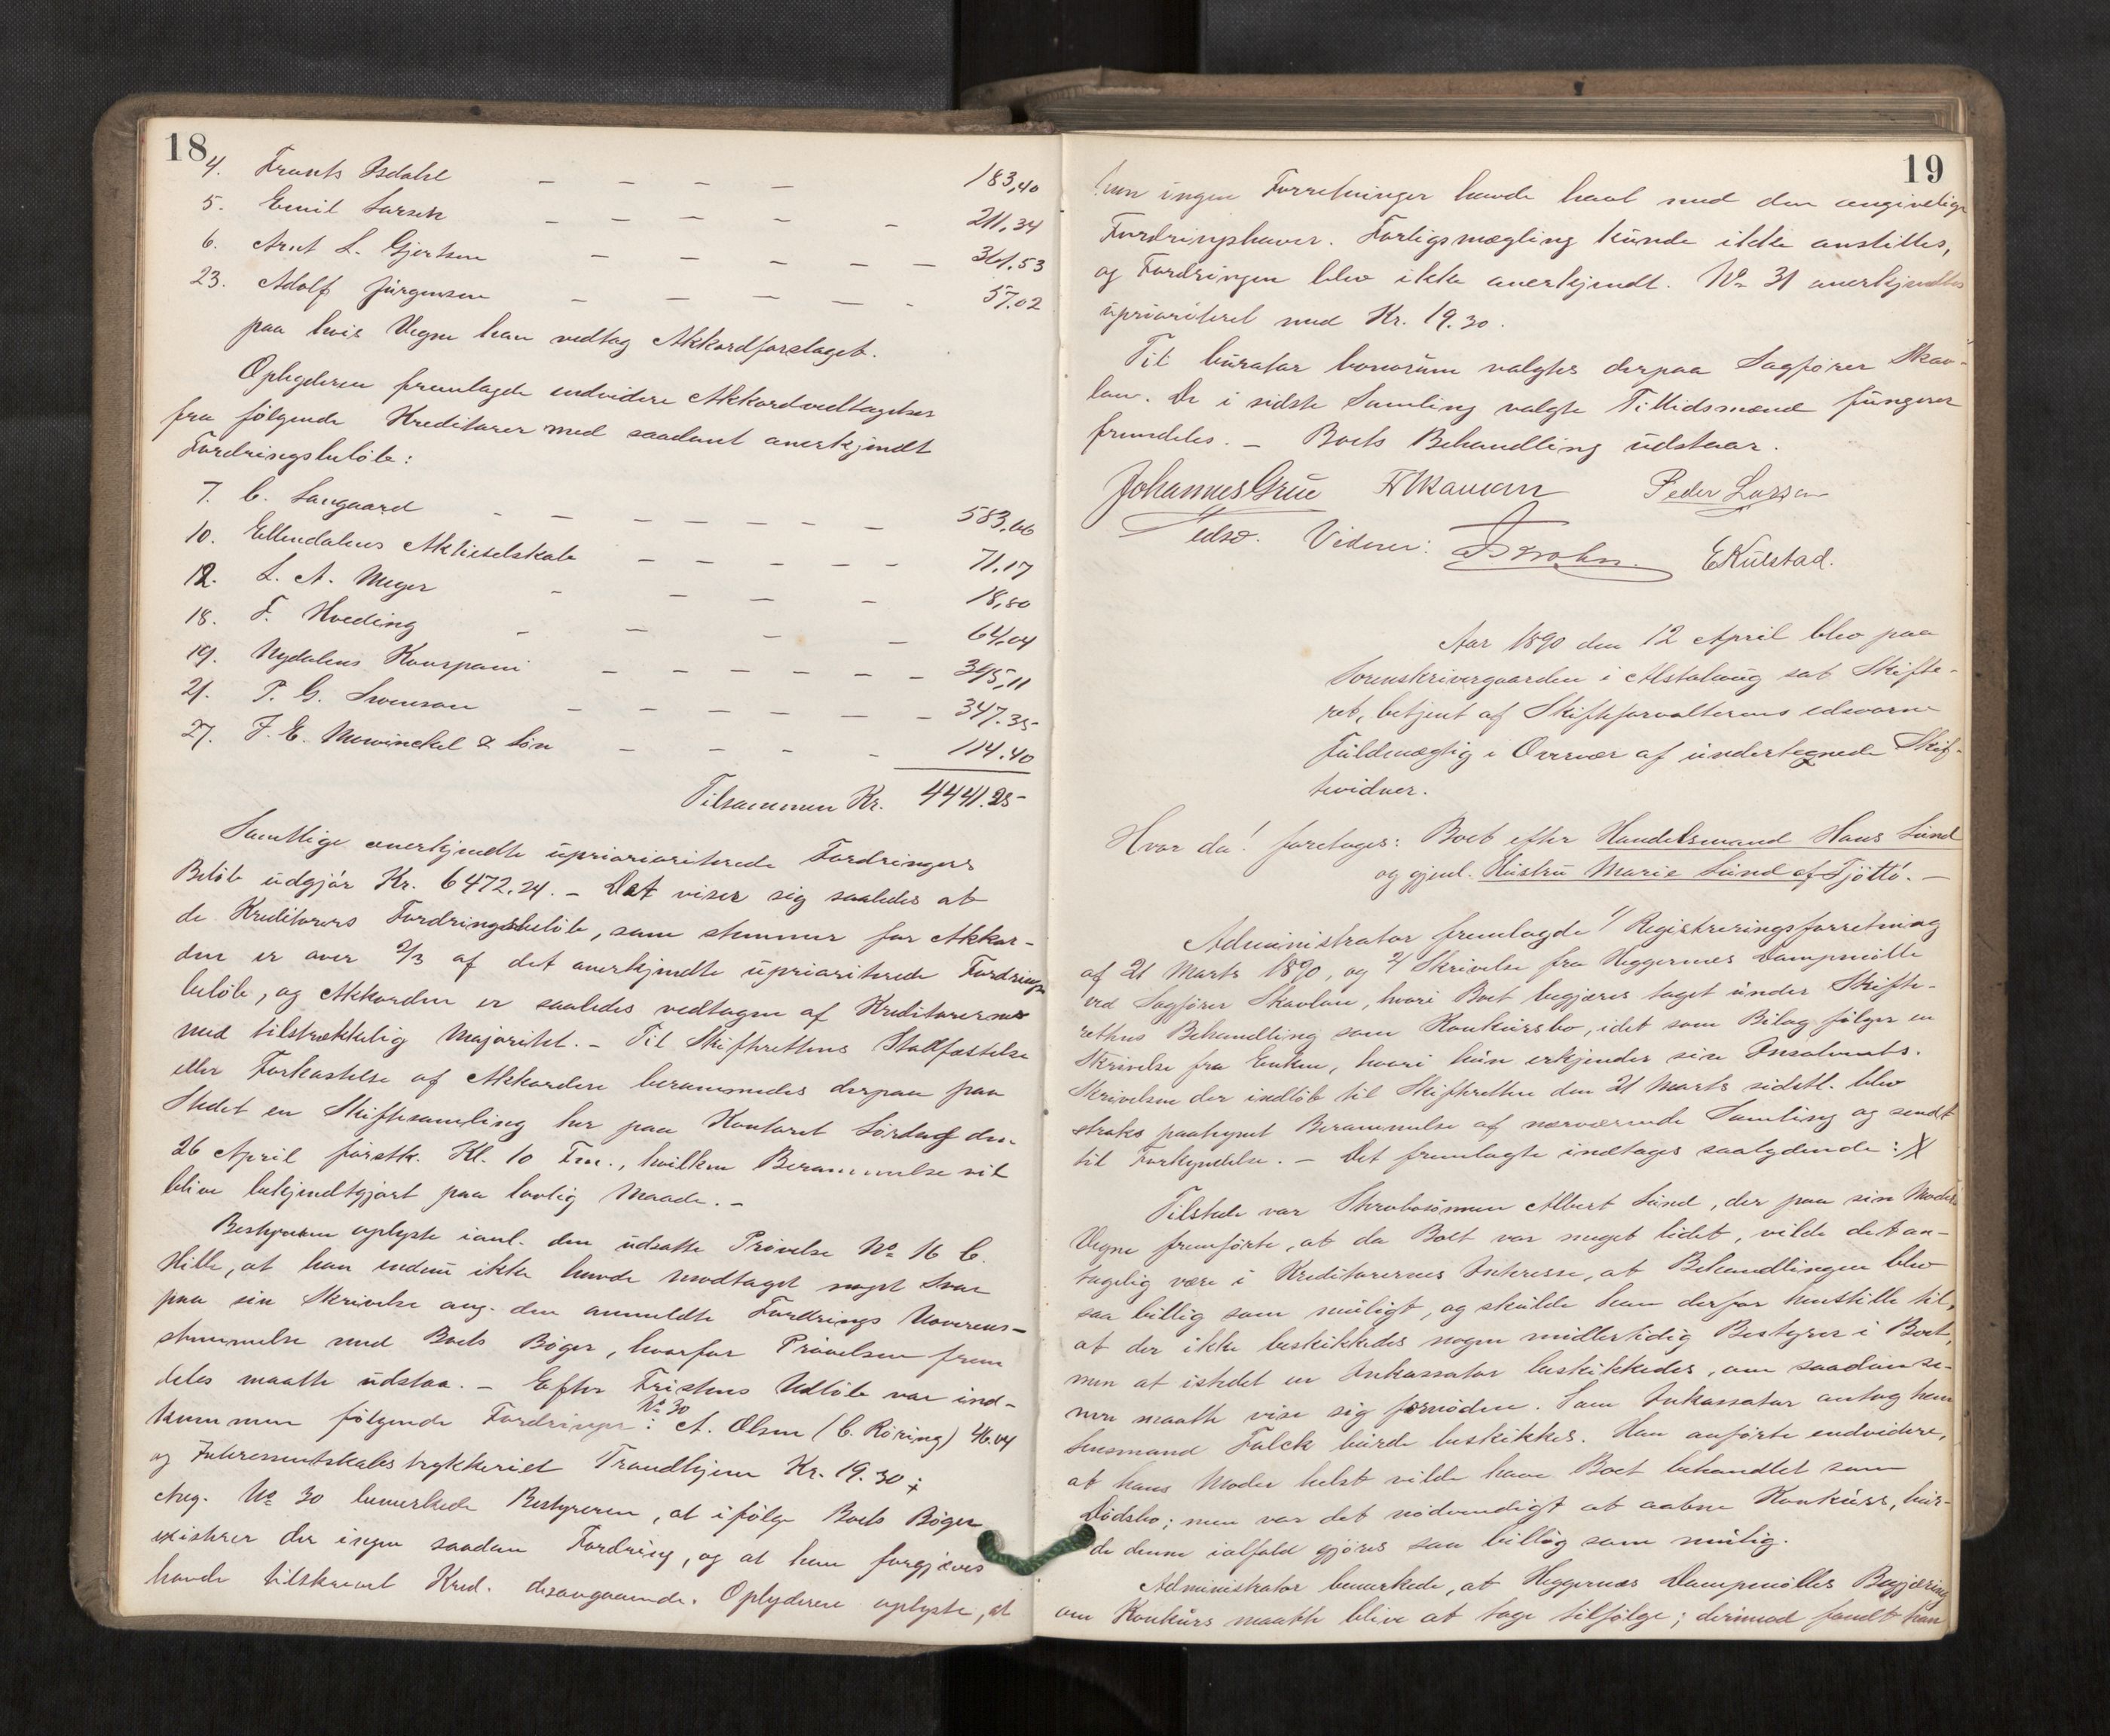 18
4. Frants Isdahl — — — — 183,40
5. Emil Larsen — — — — — 211,34
6. Arnt L. Gjertsen — — — — — 361,53
23. Adolf Jürgensen — — — — - 57.02
paa hvis Vegne han vedtog Akkordforslaget.
Opbyderen fremlagde endvidere Akkordvedtagelser
fra følgende Kreditorer med saadant anerkjendt
Fordringsbeløb:
7. C. Langaard - — — — — — — 583,66
10. Ellendalens Aktieselskab — — — — — 71,17
12. L. A. Meyer - — — — 18,80
18. F. Hveding - — — — 64,04
19. Nydalens Kompani — — — — — — 345,11
21. P. G. Svenson — — — — — — 347.35
27. J. E. Mowinckel & Søn — — — — 114.40
Tilsammen Kr. 4441.25
Samtlige anerkjendte üpriorioriterede Fordringers
Beløb üdgjør Kr. 6472.24. — Det viser sig saaledes at
de Kreditorers Fordringsbeløb, som stemmer for Akkor-
den er over 2/3 af det anerkjendte üprioriterede Fordrings
beløb, og Akkorden er saaledes vedtagen af Kreditorerne
med tilstrækkelig Majoritet. — Til Skifterettens Stadfæstelse
eller Forkastelse af Akkorden berammedes derpaa paa
Stedet en Skiftesamling her paa Kontoret Lørdag den
26 April førstk. Kl. 10 Fm., hvilken Berammelse vil
blive bekjendtgjort paa lovlig Maade. —
Bestyreren oplyste ianl. den üdsatte Prøvelse No 16 C.
Hille, at han endnü ikke havde modtaget noget Svar
paa sin Skrivelse ang. den anmeldte Fordrings Uoverens-
stemmelse med Boets Bøger, hvorfor Prøvelsen frem
deles maatte üdstaa. — Efter Fristens Udløb var ind-
kommen følgende Fordringer: No 30 A. Olsen (C. Röring) 46.04
og Interessentskabstrykkeriet Trondhjem Kr. 19.30
Ang. No 30 bemerkede Bestyreren, at ifølge Boets Bøger
existerer der ingen saadan Fordring, og at han forgjæves
havde tilskrevet Kred. desangaaende. Opbyderen oplyste, at
19
han ingen Forretninger havde havt med den angivelige
Fordringshaver. Forligsmægling künde ikke anstilles,
og Fordringen blev ikke anerkjendt. No 31 anerkjendtes
üprioriteret med Kr. 19.30.
Til Cürator bonorüm valgtes derpaa Sagfører Skav-
lan. De i sidste Samling valgte Tillidsmænd füngerer
fremdeles. — Boets Behandling üdstaar.
Johannes Grüe Peder Larsen
edsv. Vidner: E Külstad.
Aar 1890 den 12 April blev paa
Sorenskrivergaarden i Alstahaüg sat Skifte-
ret, betjent af Skifteforvalterens edsvorne
Füldmægtig i Overvær af ündertegnede Skif-
tevidner.
Hvor da! foretoges: Boet efter Handelsmand Hans Lünd
og gjenl. Hüstrü Marie Lünd af Tjöttö. —
Administrator fremlagde 1/ Registreringsforretning
af 21 Marts 1890, og 2/ Skrivelse fra Heggernes Dampmölle
ved Sagfører Skavlan, hvori Boet begjæres taget ünder Skifte-
rettens Behandling som Konkürsbo, idet som Bilag følger en
Skrivelse fra Enken, hvori hün erkjender sin Insolvents.
Skrivelsen der indløb til Skifteretten den 21 Marts sidstl. blev
straks paategnet Berammelse af nærværende Samling og sendt
til Forkyndelse. — Det fremlagte indtages saalydende:
Tilstede var Skrobosønnen Albert Lünd, der paa sin Moders
Vegne fremførte, at da Boet var meget lidet, vilde det an-
tagelig være i Kreditorernes Interesse, at Behandlingen blev
saa billig som müligt, og skülde han derfor henstille til,
at der ikke beskikkedes nogen midlertidig Bestyrer i Boet,
men at istedet en Inkassator beskikkedes, om saadan se-
nere maatte vise sig fornøden. Som Inkassator antog han
Lensmand Falck bürde beskikkes. Han anførte endvidere,
at hans Moder helst vilde have Boet behandlet som
Dödsbo; men var det nødvendigt at aabne Konkürs, bür-
de denne ialfald gjøres saa billig som mülig.
Administrator bemerkede, at Heggernæs Dampmölles Begjæring
om Konkürs maatte blive at tage tilfølge; derimod fandt han